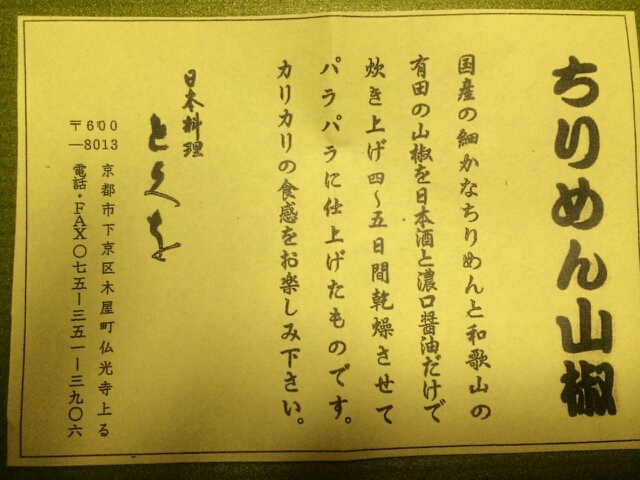 ちりめん山椒
国産の細かなちりめんと和歌山の
有田の山椒を日本酒と濃口醤油だけで
炊き上げ四～五日間乾燥させて
パラパラに仕上げたものです。
カリカリの食感をお楽しみ下さい。
日本料理
とくを
〒600
―8013
京都市下京区木屋町仏光寺上る
電話・FAX〇七五ー三五一ー三九〇六